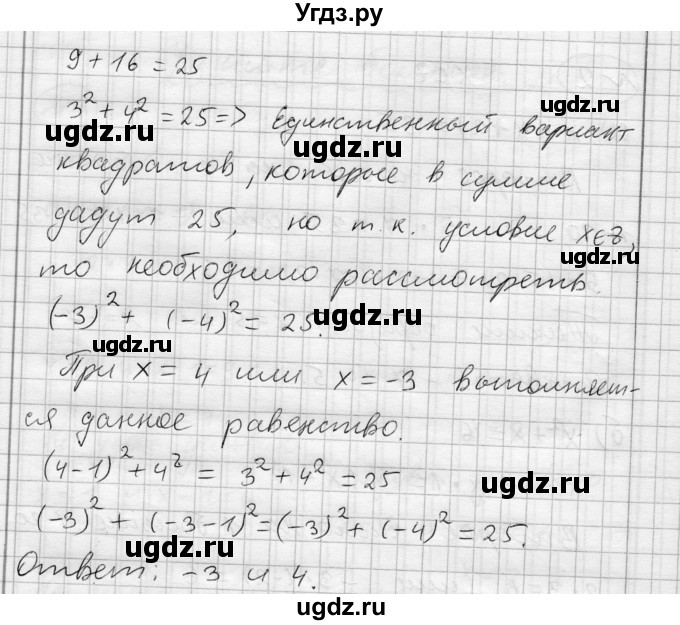 Угдз.ру
9 + 16 = 25
3² + 4² = 25 => Единственный вариант
квадратов, которые в сумме
дадут 25, но т.к. условие x∈Z,
то необходимо рассмотреть
(-3)² + (-4)² = 25.
При x = 4 или x = -3 выполняет-
ся данное равенство.
(4-1)² + 4² = 3² + 4² = 25
(-3)² + (-3-1)² = (-3)² + (-4)² = 25.
Ответ: -3 и 4.
ugdz.ru
ugdz.ru
ugdz.ru
ugdz.ru
ugdz.ru
ugdz.ru
ugdz.ru
ugdz.ru
ugdz.ru
ugdz.ru
ugdz.ru